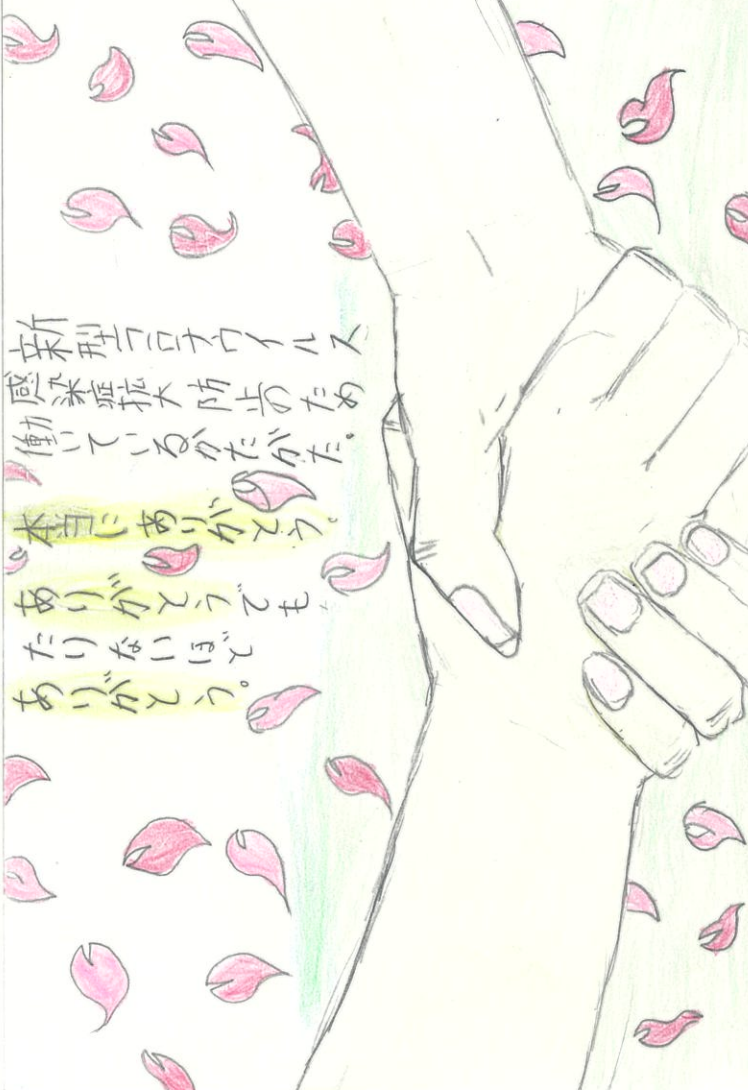 新型コロナウイルス
感染症拡大防止のため
働いているかたがた。
本当にありがとう。
ありがとうでも、
たりないほど
ありがとう。